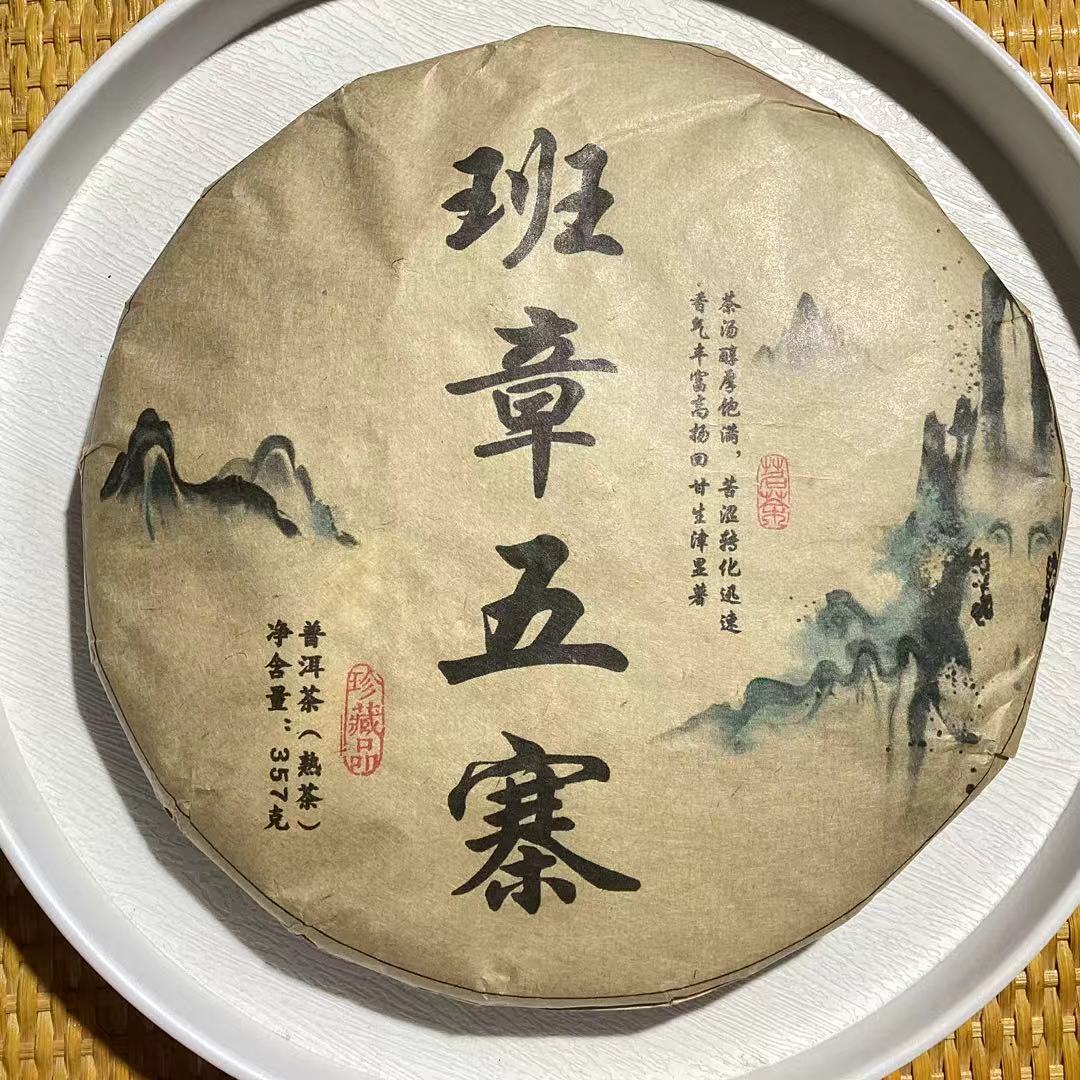 班章五寨
茶汤醇厚饱满，苦涩转化迅速
香气丰富高扬回甘生津显著
茗茶
普洱茶（熟茶）
净含量：357克
珍藏品